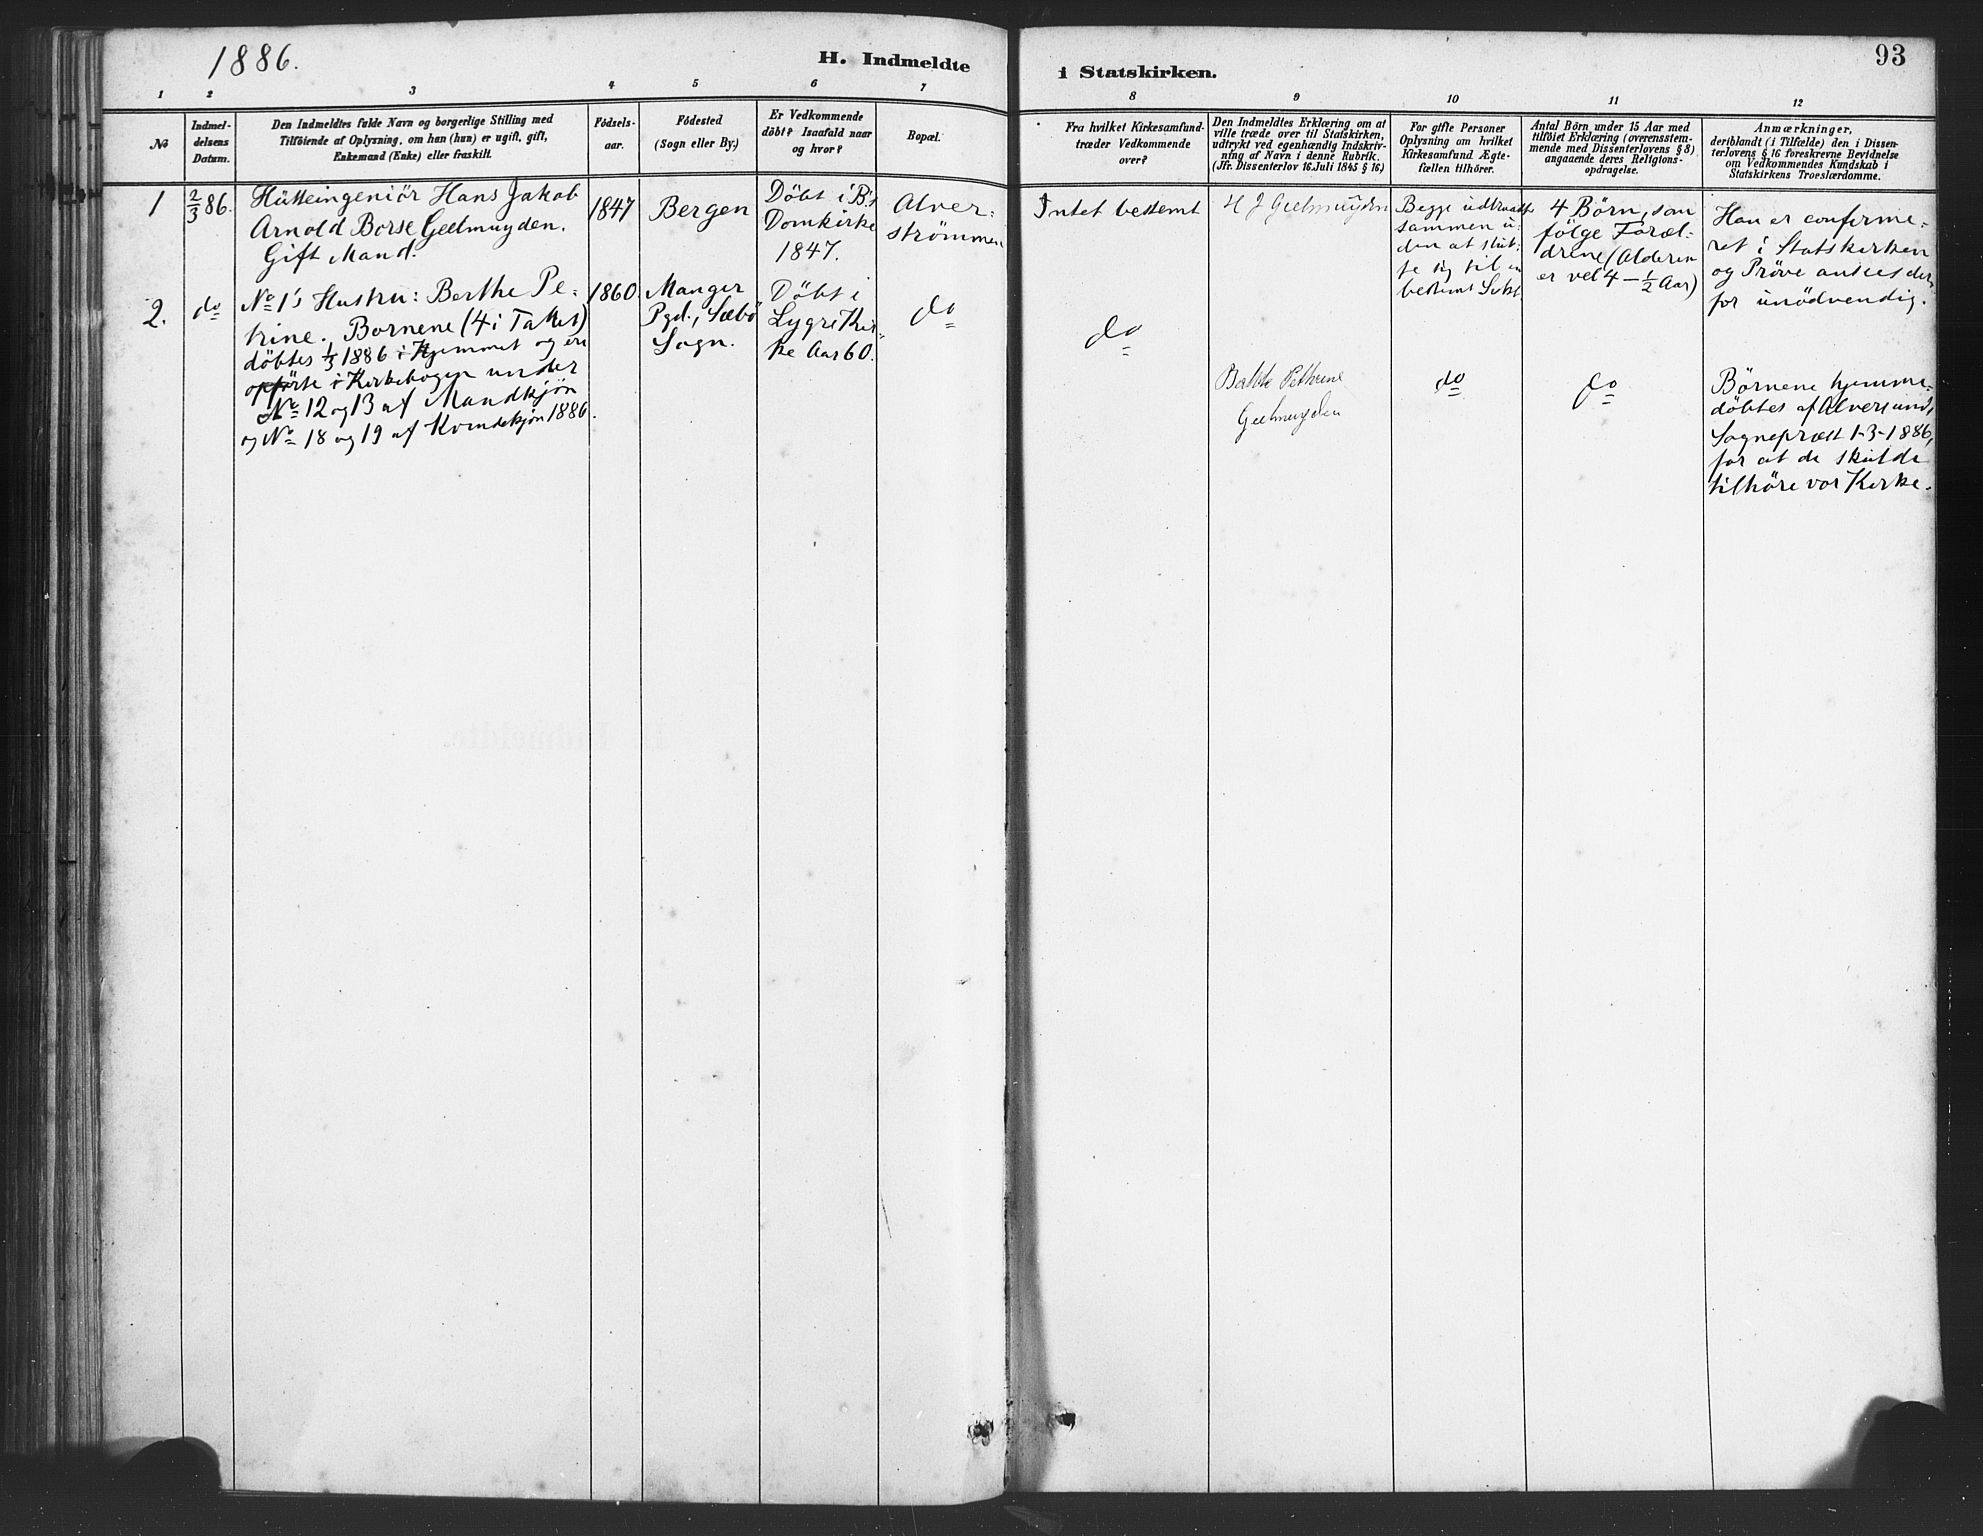 1886.
H. Indmeldte
i Statskirken.
93
1
2
3
4
5
6
7
8
9
10
11
12
No
Indmel-
delsens
Datum.
Den Indmeldtes fulde Navn og borgerlige Stilling med
Tilföiende af Oplysning, om han (hun) er ugift, gift,
Enkemand (Enke) eller fraskilt.
Födsels-
aar.
Födested
(Sogn eller By.)
Er Vedkommende
döbt? Isaafald naar
og hvor?
Bopæl.
Fra hvilket Kirkesamfund
træder Vedkommende
over?
Den Indmeldtes Erklæring om at
ville træde over til Statskirken,
udtrykt ved egenhændig Indskriv-
ning af Navn i denne Rubrik.
(Jfr. Dissenterlov 16 Juli 1845 § 16.)
For gifte Personer
Oplysning om hvilket
Kirkesamfund Ægte-
fællen tilhörer.
Antal Börn under 15 Aar med
tilföiet Erklæring (overensstem-
mende med Dissenterlovens § 8)
angaaende deres Religions-
opdragelse.
Anmærkninger,
deriblandt (i Tilfælde) den i Dissen-
terlovens § 16 foreskrevne Bevidnelse
om Vedkommendes Kundskab i
Statskirkens Troeslærdomme.
1
2/3 86.
Hütteingeniör Hans Jakob
Arnold Borse Geelmuyden.
Gift Mand.
1847
Bergen
Döbt i B.s
Domkirke
1847.
Alver-
strømmen
Intet bestemt
H J Geelmuyden
Begge udtraadte
sammen u-
den at slut-
te sig til en
bestemt Sekt
4 Börn, som
følge Foræl-
drene (Alderen
er vel 4 – 1/2 Aar)
Han er confirme-
ret i Statskirken
og Pröve ansees der-
for unödvendig.
2.
do
No 1's Hustru: Berthe Pe-
trine. Børnene (4 i Tallet)
döbtes 1/3 1886 i Hjemmet og ere
opförte i Kirkebogen under
No 12 og 13 af Mandkjøn
og No 18 og 19 af Kvindekjøn 1886.
1860
Manger
Pgd., Sæbö
Sogn.
Döbt i
Lygre Kir-
ke Aar 60.
do
do
Berthe Pethrine
Geelmuyden
do
do
Börnene hjemme-
döbtes af Alversunds
Sognepræst 1-3-1886,
for at de skulde
tilhöre vor Kirke.